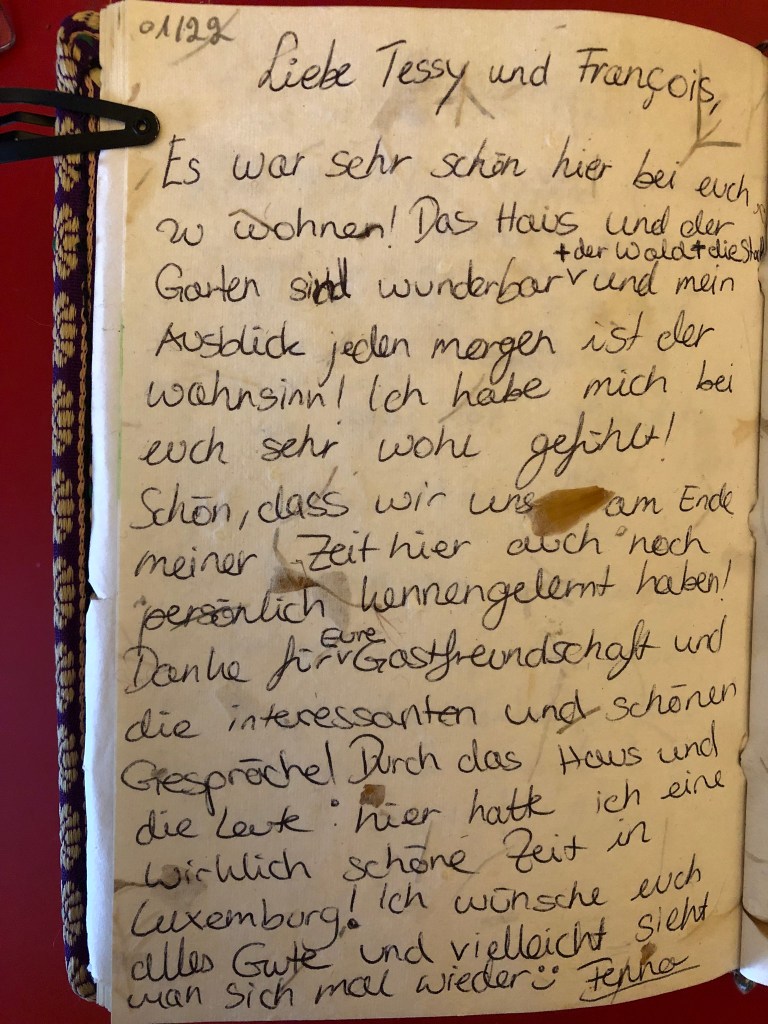 01/22
Liebe Tessy und François,
Es war sehr schön hier bei euch
zu wohnen! Das Haus und der
+ der Wald + die
Garten sind wunderbar und mein
Ausblick jeden morgen ist der
wahnsinn! Ich habe mich bei
euch sehr wohl gefühlt!
Schön, dass wir uns am Ende
meiner Zeit hier auch noch
persönlich kennengelernt haben!
Eure
Danke für Gastfreundschaft und
die interessanten und schönen
Gespräche! Durch das Haus und
die Leute hier hatte ich eine
wirklich schöne Zeit in
Luxemburg! Ich wünsche euch
alles Gute und vielleicht sieht
man sich mal wieder :)